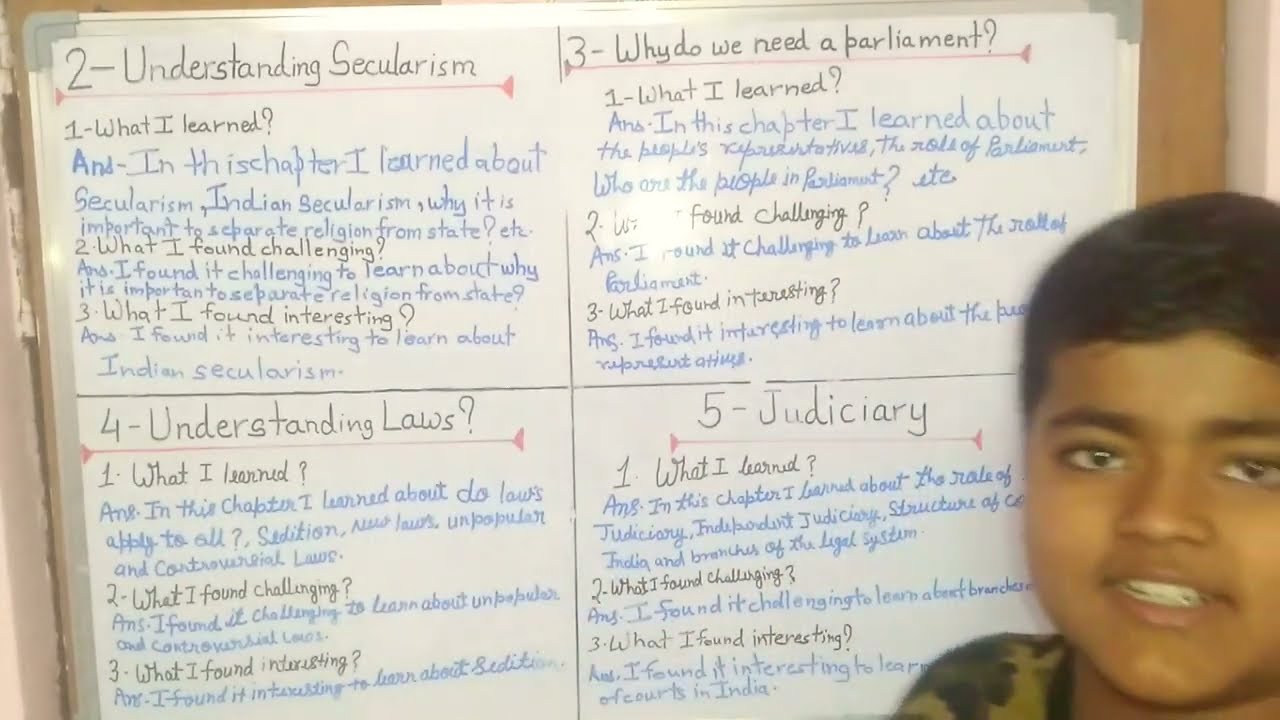 2-Understanding Secularism
1-What I learned?
Ans-In thischapter I learned about
Secularism, Indian Secularism, why it is
important to separate religion from state? etc.
2.What I found challenging?
Ans. I found it challenging to learn about why
it is important to separate religion from state?
3.What I found interesting?
Ans. I found it interesting to learn about
Indian secularism.
3-Why do we need a parliament?
1-What I learned?
Ans.In this chapter I learned about
the people's representatives, The role of Parliament,
Who are the people in Parliament? etc
2. found challenging?
Ans. I found it challenging to learn about The roll of
Parliament.
3-What I found interesting?
Ans. I found it interesting to learn about the
representatives.
4-Understanding Laws?
1. What I learned?
Ans. In this Chapter I learned about do law's
apply to all?, Sedition, New laws, unpopular
and Controversial Laws.
2-What I found challenging?
Ans. I found it challenging to learn about unpopular
and controversial Laws.
3. What I found interesting?
Ans. I found it interesting to learn about Sedition.
5-Judiciary
1. What I learned?
Ans. In this chapter I learned about the role of
Judiciary, Independent Judiciary, Structure of
India and branches of the legal system.
2-What I found challenging?
Ans. I found it challenging to learn about branches
3.What I found interesting?
Ans. I found it interesting to
of courts in India.